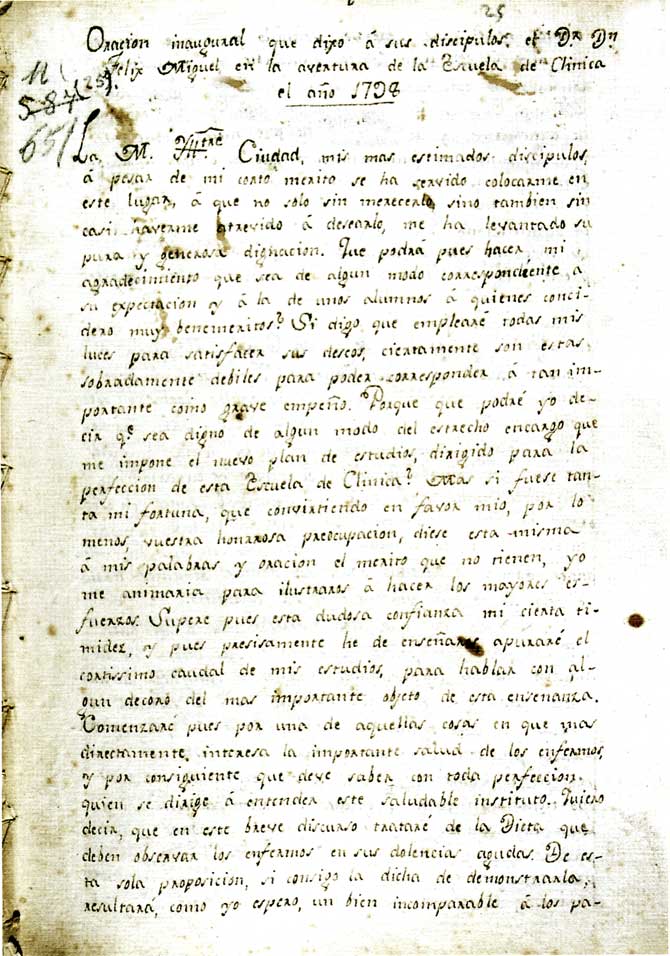 25
Oracion inaugural que dixo á sus discipulos el Dr. Dn.
Felix Miguel en la avertura de la Escuela de Clinica
el año 1798
11
587 (25).
651
La M. Yltre. Ciudad, mis mas estimados discipulos,
á pesar de mi corto merito se ha servido colocarme en
este lugar, á que no solo sin merecerlo, sino tambien sin
casi haverme atrevido á desearlo, me ha levantado su
pura y generosa dignacion. Que podrá pues hacer mi
agradecimiento que sea de algun modo correspondiente a
su expectacion y á la de unos alumnos á quienes conci-
dero muy benemeritos? Si digo que emplearé todas mis
luces para satisfacer sus deseos, ciertamente son estas
sobradamente debiles para poder corresponder á tan im-
portante como grave empeño. Porque que podré yo de-
cir qe. sea digno de algun modo del estrecho encargo que
me impone el nuevo plan de estudios, dirigido para la
perfeccion de esta Escuela de Clinica? Mas si fuese tan-
ta mi fortuna, que convirtiendo en favor mio, por lo
menos, vuestra honrrosa preocupacion, diese esta misma
á mis palabras y oracion el merito que no tienen, yo
me animaria para ilustraros á hacer los mayores es-
fuerzos. Supere pues esta dudosa confianza mi cierta ti-
midez, y pues presisamente he de enseñaros apuraré el
cortissimo caudal de mis estudios, para hablar con al-
gun decoro del mas importante objeto de esta enseñanza.
Comenzaré pues por una de aquellas cosas en que mas
directamente interesa la importante salud de los enfermos,
y por consiguiente que deve saber con toda perfeccion
quien se dirige á entender este saludable instituto. Quiero
decir, que en este breve discurso trataré de la Dieta que
deben observar los enfermos en sus dolencias agudas. De es-
ta sola proposicion, si consigo la dicha de demonstrarla,
resultará, como yo espero, un bien incomparable á los pa-